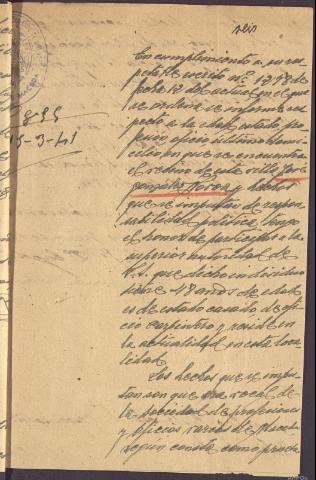 seis
En cumplimiento a su res
petable escrito nº 1898 de
fecha 12 del actual en el que
se ordena se informe res
pecto a la edad, estado, pro
fesión oficio último domi
cilio en que se encuentra
el vecino de esta villa José
González y hechos
que se imputan de respon
sabilidad política, tengo
el honor de participar a la
superior autoridad de
V.S. que dicho individuo
tiene 48 años de edad
es de estado casado de ofi
cio carpintero y reside en
la actualidad en esta loca
lidad.
Los hechos que se impu
tan son que era vocal de
la Sociedad de profesiones
y oficios varios de
según consta como
835
15-3-41